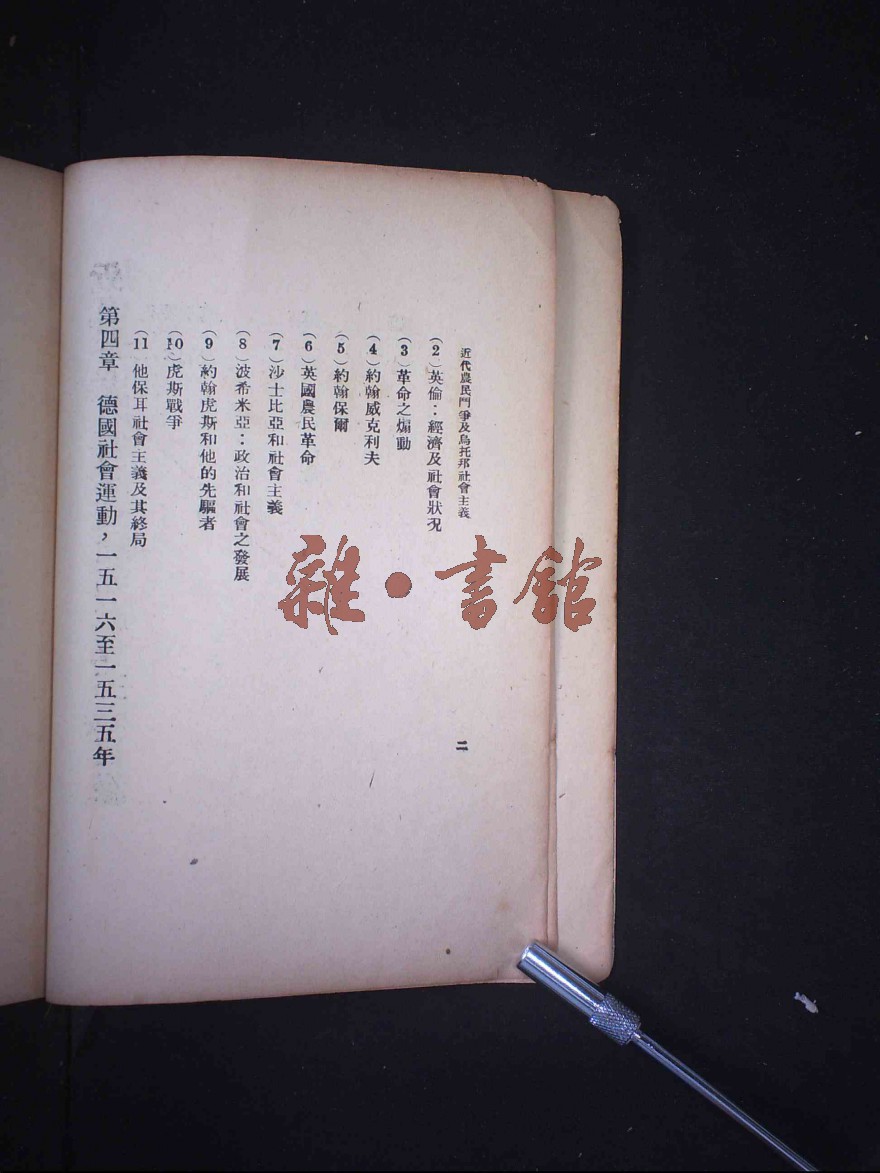 近代農民鬥爭及烏托邦社會主義
二
(2)英倫：經濟及社會狀况
(3)革命之煽動
(4)約翰威克利夫
(5)約翰保爾
(6)英國農民革命
(7)沙士比亞和社會主義
(8)波希米亞：政治和社會之發展
(9)約翰虎斯和他的先驅者
(10)虎斯戰爭
(11)他保耳社會主義及其終局
第四章　德國社會運動，一五一六至一五三五年
雜·書館